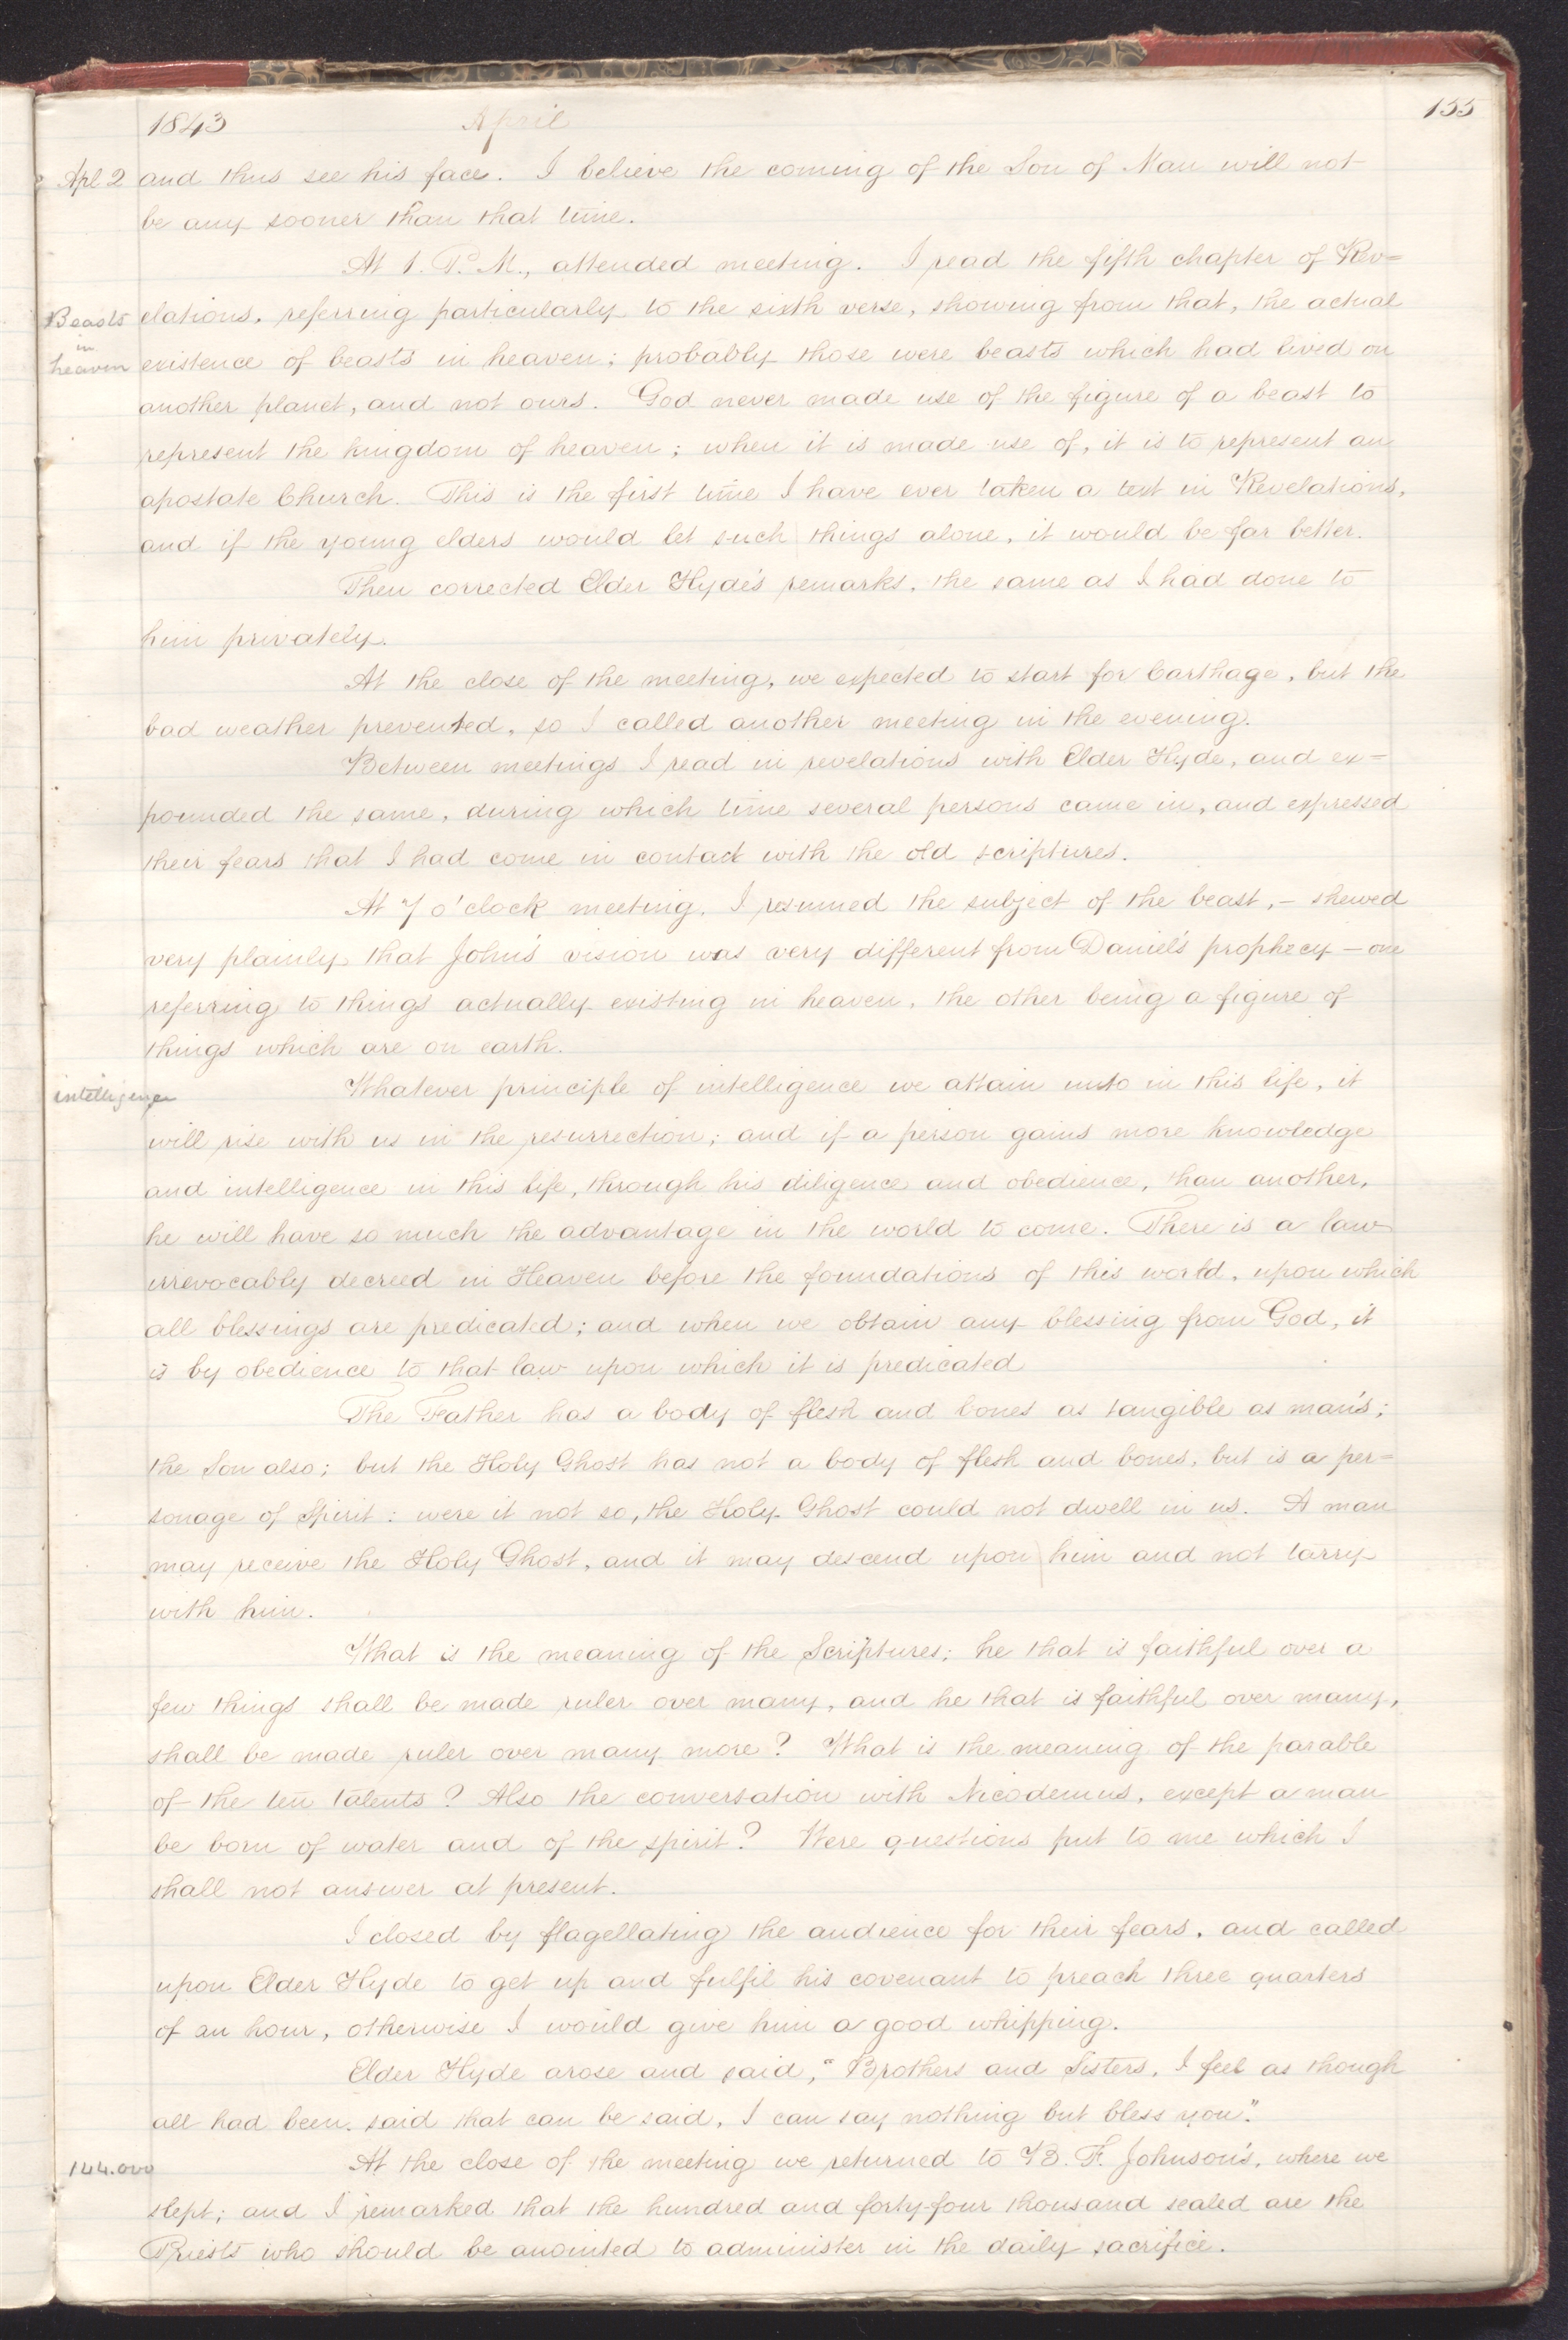 1843 April 155
Apl 2 and thus see his face. I believe the coming of the Son of Man will not
be any sooner than that time.
At 1. P. M., attended meeting. I read the fifth chapter of Rev=
Beasts elations, referring particularly to the sixth verse, showing from that, the actual
in
heaven existence of beasts in heaven; probably those were beasts which had lived on
another planet, and not ours. God never made use of the figure of a beast to
represent the kingdom of heaven; when it is made use of, it is to represent an
apostate Church. This is the first time I have ever taken a text in Revelations,
and if the young elders would let such things alone, it would be far better.
Then corrected Elder Hyde's remarks, the same as I had done to
him privately.
At the close of the meeting, we expected to start for Carthage, but the
bad weather prevented, so I called another meeting in the evening.
Between meetings I read in revelations with Elder Hyde, and ex=
pounded the same, during which time several persons came in, and expressed
their fears that I had come in contact with the old scriptures.
At 7 o'clock meeting, I resumed the subject of the beast,- shewed
very plainly that John's vision was very different from Daniel's prophecy - one
referring to things actually existing in heaven, the other being a figure of
things which are on earth.
intelligence Whatever principle of intelligence we attain unto in this life, it
will rise with us in the resurrection; and if a person gains more knowledge
and intelligence in this life, through his diligence and obedience, than another,
he will have so much the advantage in the world to come. There is a law
irrevocably decreed in Heaven before the foundations of this world, upon which
all blessings are predicated; and when we obtain any blessing from God, it
is by obedience to that law upon which it is predicated
The Father has a body of flesh and bones as tangible as man's;
the Son also; but the Holy Ghost has not a body of flesh and bones, but is a per=
sonage of Spirit: were it not so, the Holy Ghost could not dwell in us. A man
may receive the Holy Ghost, and it may descend upon him and not tarry
with him.
What is the meaning of the Scriptures; he that is faithful over a
few things shall be made ruler over many, and he that is faithful over many,
shall be made ruler over many more? What is the meaning of the parable
of the ten talents? Also the conversation with Nicodemus, except a man
be born of water and of the spirit? Were questions put to me which I
shall not answer at present.
I closed by flagellating the audience for their fears, and called
upon Elder Hyde to get up and fulfil his covenant to preach three quarters
of an hour, otherwise I would give him a good whipping.
Elder Hyde arose and said, "Brothers and Sisters, I feel as though
all had been said that can be said, I can say nothing but bless you."
144.000 At the close of the meeting we returned to B. F. Johnson's, where we
slept; and I remarked that the hundred and forty-four thousand sealed are the
Priests who should be anointed to administer in the daily sacrifice.